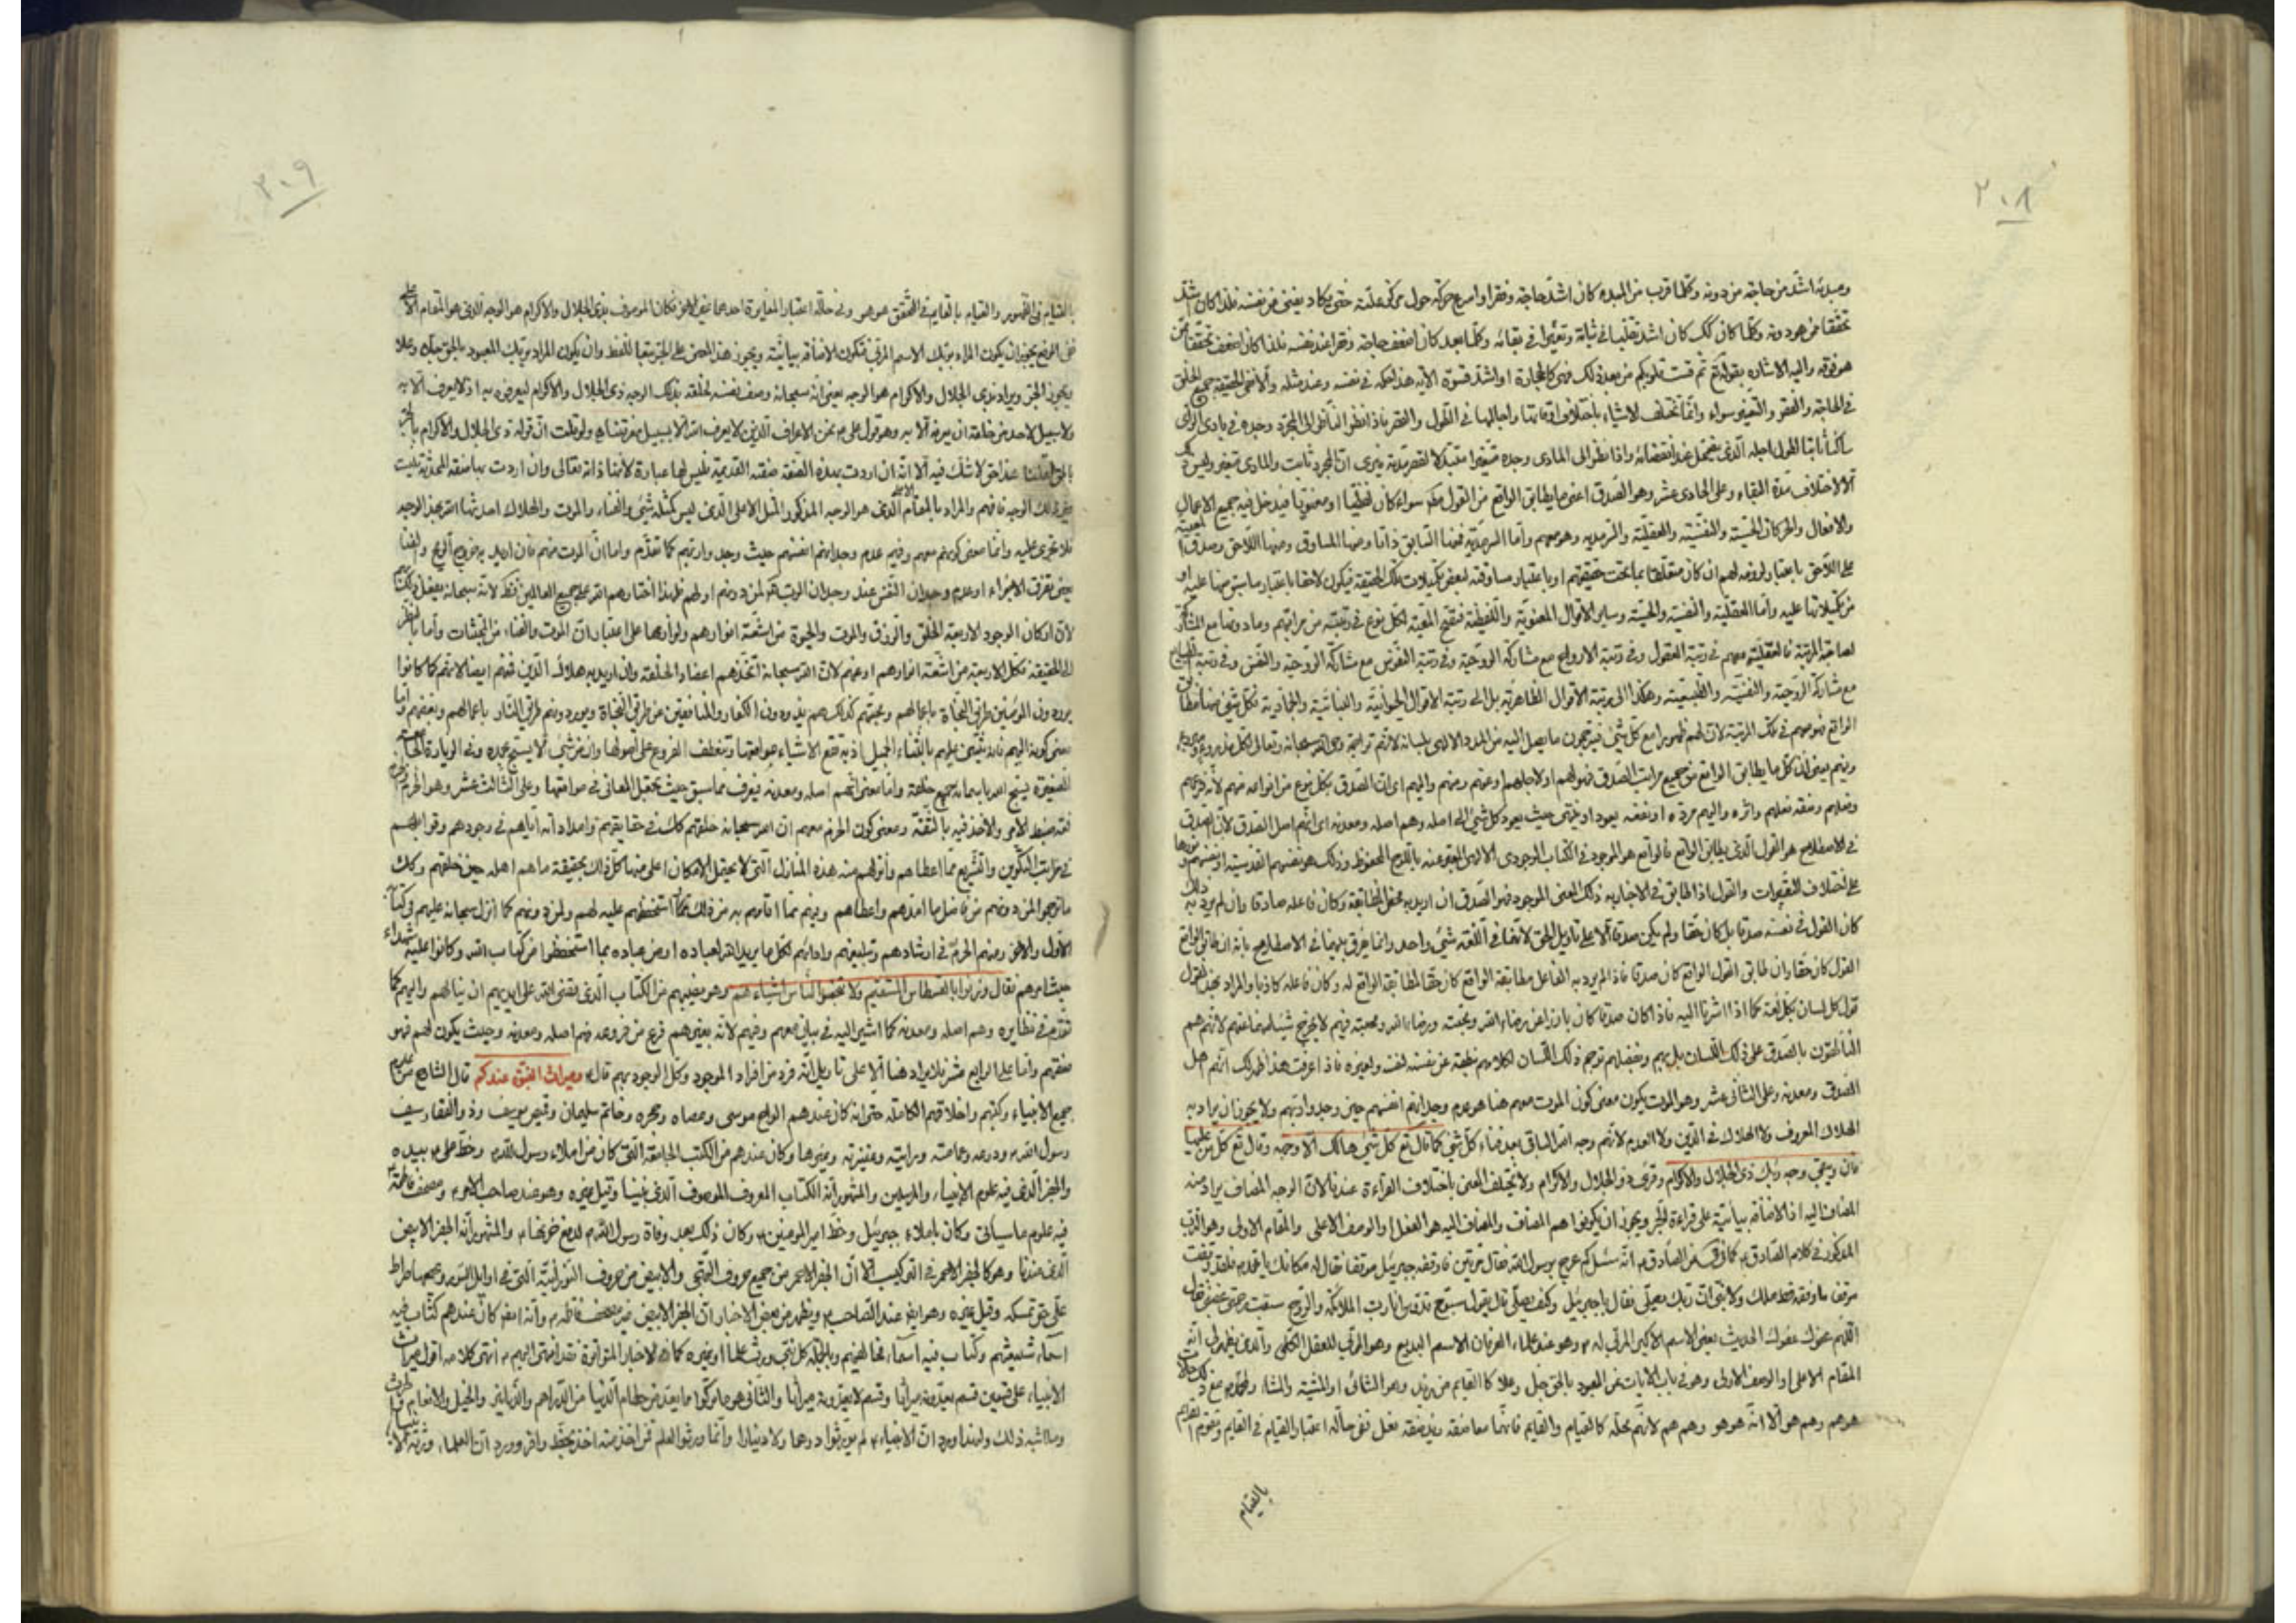 ٢٠٨
ومبدئه اشد من حاجته من دونه وكلما قرب من المبدء كان اشد حاجته وفقرا واسرع حركة حول مركز علته حتى يكاد يفنى عن نفسه فلذا كان اشد
تحققا ممن هو دونه وكلما كان كك كان اشد تقلبا في ثباته وتغيرا في بقائه وكلما بعد كان اضعف حاجته وفقرا عند نفسه فلذا كان اضعف تحققا ممن
هو فوقه واليه الاشارة بقوله تع ثم قست قلوبكم من بعد ذلك فهي كالحجارة او اشد قسوة الآية هذا حكمه في نفسه وعند مثله والا ففي الحقيقة جميع الخلق
في الحاجة والفقر والتغير سواء وانما تختلف الاشياء باختلاف اوقاتها واجالها في الطول والقصر فاذا نظر الناظر الى المجرد وجده في بادى الراى
ساكنا ثابتا لطول اجله الذى يضمحل عند انقضائه واذا نظر الى المادى وجده متغيرا متبدلا لقصر مدته فيرى ان المجرد ثابت والمادى متغير وليس كك
الا لاختلاف مدة البقاء وعلى الحادى عشر وهو الصدق اعنى ما يطابق الواقع من القول منهم سواء كان لفظيا او معنويا فيدخل فيه جميع الاعمال
والافعال والحركات الحسية والنفسية والعقلية والسرمدية وهو معهم واما السرمدية فمنها السابق ذاتا ومنها المساوق ومنها اللاحق وصدق المعية
على اللاحق باعتبار لزومه لهم ان كان متعلقا بما تحت حقيقتهم او باعتبار مساوقته لبعض تكميلات تلك الحقيقة فيكون لاحقا باعتبار ما سبق منها عليه او
من تكميلاتها عليه واما العقلية والنفسية والحسية وساير الاقوال المعنوية واللفظية فتصح المعية لكل نوع في رتبته من مراتبهم وما دونها مع المشاركة
لصاحبة المرتبة فالعقلية معهم في رتبة العقول وفي رتبة الارواح مع مشاركة الروحية وفي رتبة النفوس مع مشاركة الروحية والنفس وفي رتبة الطبايع
مع مشاركة الروحية والنفسية والطبيعية وهكذا الى رتبة الاقوال الظاهرية بل الى رتبة الاقوال الحيوانية والنباتية والجمادية فكل شيء منها مطابق
الواقع فهو معهم في تلك المرتبة لان لهم ظهورا مع كل شيء فيترجمون ما يصل اليه من المدد الالهى بلسانه
ومنهم يعنى ان كل ما يطابق الواقع من جميع مراتب الصدق فهو لهم اولا جلهم وعنهم ومنهم واليهم اى ان الصدق بكل نوع من انواعه منهم لانه فرعهم
وفعلهم وصفة فعلهم واثره واليهم مرده اى نفعه يعود او ينتهى حيث يعود كل شيء الى اصله وهم اصله ومعدنه اى انهم اصل الصدق لان الصدق
في الاصطلاح هو القول الذى يطابق الواقع فالواقع هو الموجود في الكتاب الوجودى الالهى المعبر عنه باللوح المحفوظ وذلك هو نفسهم القدسية او نفسهم ونورها
على اختلاف التعبيرات والقول اذا طابق في الاخبار به ذلك المعنى الموجود فهو الصدق ان اريد به محض المطابقة وكان فاعله صادقا وان لم يرد به ذلك
كان القول في نفسه صدقا بل كان حقا ولم يكن صدقا الا على تاويل الحق لانهما في اللغة شيء واحد وانما يفرق بينهما في الاصطلاح بانه ان طابق الواقع
القول كان حقا وان طابق القول الواقع كان صدقا فاذا لم يرد به الفاعل مطابقة الواقع كان حقا لمطابقة الواقع له وكان فاعله كاذبا والمراد بهذا القول
قول كل لسان بكل لغة كما اذا اشرنا اليه فاذا كان صدقا كان بارزا عن رضاء الله ومحبته ورضاء الله ومحبته فيهم لا يخرج شيء منهما عنهم لانهم هم
الناطقون بالصدق على ذلك اللسان بل بهم وبفضلهم ترجم ذلك اللسان لكلامهم نطقه عن نفسه لنفسه ولغيره فاذا عرفت هذا ظهر لك انهم اهل
الصدق ومعدنه وعلى الثانى عشر وهو الموت يكون معنى كون الموت معهم هنا هو عدم وجدانهم انفسهم حين وجدوا ربهم ولا يجوز ان يراد به
الهلاك المعروف ولا الهلاك في الدين ولا العدم لانهم وجه الله الباقى بعد فناء كل شيء كما قال تع كل شيء هالك الا وجهه وقال تع كل من عليها
فان ويبقى وجه ربك ذى الجلال والاكرام وقرئ ذو الجلال والاكرام ولا يختلف المعنى باختلاف القراءة عندنا لان الوجه المضاف يراد منه
المضاف اليه اذ الاضافة بيانية على قراءة الجر ويجوز ان يكونوا هم المضاف والمضاف اليه هو الفعل والوصف الاعلى والمقام الاولى وهو الرب
المذكور في كلام الصادق ع كما في عن الصادق ع انه سئل كم عرج برسول الله فقال مرتين فاوقفه جبرئيل موقفا فقال له مكانك يا محمد فلقد وقفت
موقفا ما وقفه قط ملك ولا نبى ان ربك يصلى فقال يا جبرئيل وكيف يصلى قال يقول سبوح قدوس انا رب الملائكة والروح سبقت رحمتى غضبى فقال
اللهم عفوك عفوك الحديث يعنى الاسم الاكبر المربى له ص وهو عند علماء العرفان الاسم البديع وهو المربى للعقل الكلى والذى يظهر لى انه
المقام الاعلى والوصف الاولى وهو في باب الايات عن المعبود بالحق جل وعلا كالقايم من زيد وهو الشائى او المشية والمشاء
هو هم وهم هو الا انه هو هو وهم هم لانهم محله كالقيام والقايم فانهما معا صفة زيد صفة فعل ففي حالة اعتبار القيام في القايم وتقوم القايم
بالقيام
٢٠٩
بالقيام في الظهور والقيام بالقايم في التحقق هو هو وفي حالة اعتبار المغايرة احدهما غير الاخر فكان الموصوف بذى الجلال والاكرام هو الوجه الذى هو المقام الاعلى
ففي الرفع يجوز ان يكون المراد بربك الاسم المربى فتكون الاضافة بيانية ويجوز هذا المعنى على الجر تبعا للفظ وان يكون المراد بربك المعبود بالحق جل وعلا
ويجوز الجر ويراد بذى الجلال والاكرام هو الوجه يعنى انه سبحانه وصف نفسه لخلقه بذلك الوجه ذى الجلال والاكرام ليعرفوه به اذ لا يعرف الا به
ولا سبيل لاحد من خلقه ان يعرفه الا به وهو قول على ع نحن الاعراف الذين لا يعرف الله الا بسبيل معرفتنا ولو قلت ان قوله ذى الجلال والاكرام بالجر
عند الحق لا شك فيه الا انه ان اردت بهذه الصفة صفته القديمة فليس لها عبارة لانها ذاته تعالى وان اردت بها صفته المحدثة فليست
غير ذلك الوجه فافهم والمراد بالمقام الاعلى الذى هو الوجه المذكور المثل الاعلى الذى ليس كمثله شيء والفناء والموت والهلاك احدثها الله بهذا الوجه
فلا تجرى عليه وانما معنى كونهم معهم وفيهم عدم وجدانهم انفسهم حيث وجدوا ربهم كما تقدم واما ان الموت منهم فان اريد به خروج الروح والفناء
يعنى تفرق الاجزاء او عدم وجدان النفس عند وجدان الرب
لان اركان الوجود الاربعة الخلق والرزق والموت والحيوة من اشعة انوارهم ولوازمها على اعتبار ان الموت والفناء من المحدثات واما بالنظر
الى الحقيقة فكل الاربعة من اشعة انوارهم او عنهم لان الله سبحانه اتخذهم اعضادا لخلقه وان اريد به هلاك الدين فعنهم ايضا لانهم كما كانوا
يوردون المؤمنين طرق النجاة باعمالهم ومحبتهم كذلك هم يذودون الكفار والمنافقين عن طرق النجاة ويوردونهم طرق النار باعمالهم وبغضهم واما
معنى كونه اليهم
الصغيرة يسبح الله باسمائه جميع خلقه واما معنى انهم اصله ومعدنه فيعرف مما سبق حيث يحتمل المعانى في مواقعها وعلى الثالث عشر وهو الحزم وهو
لغة ضبط الأمر والاخذ فيه بالثقة ومعنى كون الحزم معهم ان الله سبحانه خلقهم كذلك في حقايقهم وامداداته اياهم في وجودهم وقوابلهم
في مراتب التكوين والتشريع مما اعطاهم وانزلهم منه هذه المنازل التى لا يحتمل الامكان اعلى منها كل ذلك بحقيقة ما هم اهله حين خلقهم وكذلك
الاول والاخر ومنهم الحزم في ارشادهم وتبليغهم وادائهم لكل ما يريد الله لعباده او من عباده بما استحفظوا من كتاب الله وكانوا عليه شهداء
حيث امرهم فقال وزنوا بالقسطاس المستقيم ولا تبخسوا الناس اشياءهم وهو وفيهم من الكتاب الذى يقضى الله على ايديهم ان ينالهم واليهم كما
تقدم في نظايره وهم اصله ومعدنه كما اشير اليه في بيان معهم وفيهم لانه يعنى هم فرع من فروعه فهم اصله ومعدنه وحيث يكون لهم فهو
صفتهم واما على الرابع عشر فلا يراد هنا الا على تاويل انه فرد من افراد الموجود وكل الوجود بهم قال ع وميراث النبوة عندكم قال الشارح من علوم
جميع الانبياء وكتبهم واخلاقهم الكاملة حتى انه كان عندهم الواح موسى وعصاه وحجره وخاتم سليمان وقميص يوسف وذو الفقار سيف
رسول الله ص ودرعه وعمامته ورايته وعنزته وغيرها وكان عندهم من الكتب الجامعة التى كان من املاء رسول الله ص وخط على ع بيده
والجفر الذى فيه علوم الانبياء والمرسلين والمشهور انه الكتاب المعروف الموصوف الذى بيننا وقيل غيره وهو عند صاحب الامر ع ومصحف فاطمة ع
فيه علوم ما سياتى وكان باملاء جبرئيل وخط امير المومنين ع وكان ذلك بعد وفاة رسول الله ص لدفع حزنها ع والمشهور انه الجفر الابيض
الذى عندنا وهو كالجفر الاحمر في التركيب الا ان الجفر الاحمر من جميع حروف التهجى والابيض من حروف النورانية التى في اوايل السور ويجمعها صراط
على حق نمسكه وقيل غيره وهو ايضا عند الصاحب ع ويظهر من بعض الاخبار ان الجفر الابيض فيه مصحف فاطمة ع وانه ايضا كان عندهم كتاب فيه
اسماء شيعتهم وكتاب فيه اسماء مخالفيهم وبالجملة كل نبى ورث علما او غيره كما في الاخبار المتواترة فقد انتهى اليهم ع انتهى كلامه اقول ميراث
الانبياء على قسمين قسم يعدونه ميراثا وقسم لا يعدونه ميراثا والثانى هو ما تركوا مما يعد من حطام الدنيا من الدراهم والدنانير والخيل والانعام والحرث
وما اشبه ذلك ولهذا ورد ان الانبياء ع لم يورثوا درهما ولا دينارا وانما ورثوا العلم فمن اخذ منه اخذ بحظ وافر وورد ان العلماء ورثة الانبياء